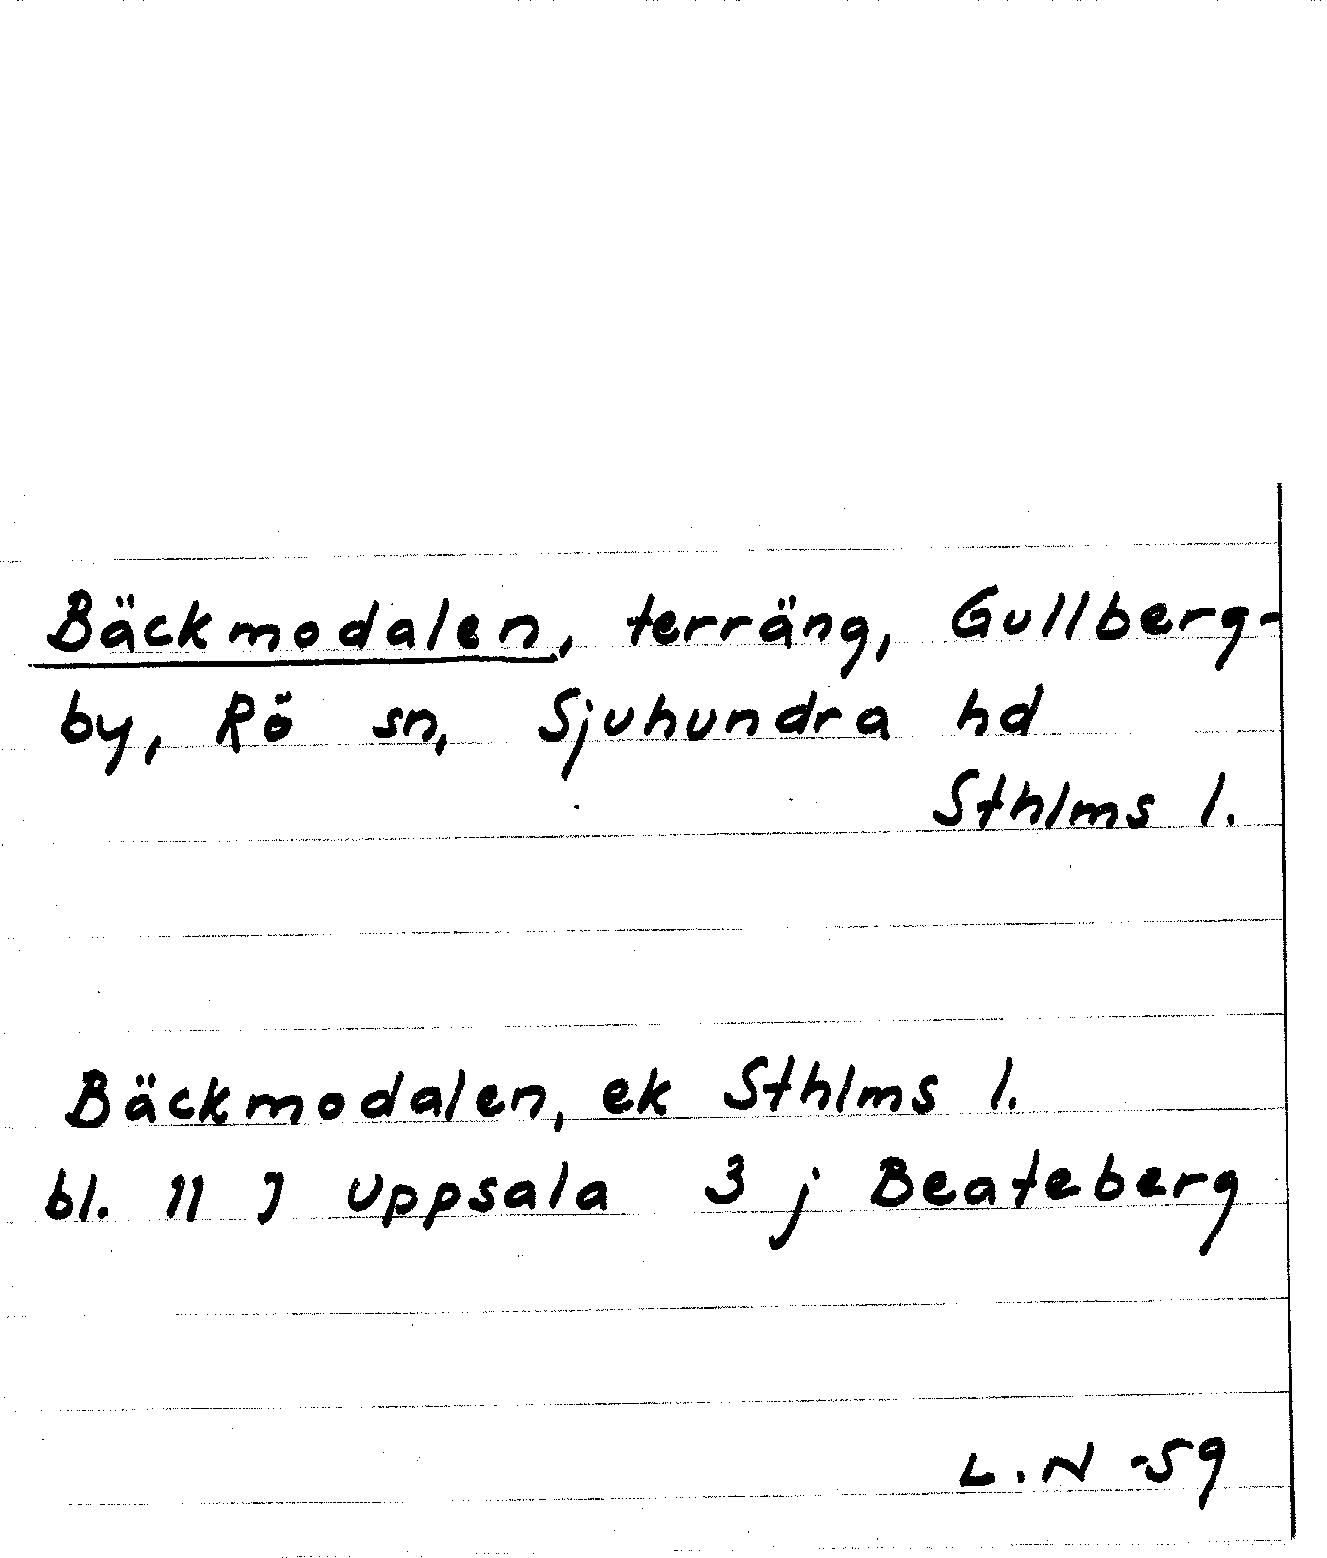 Bäckmodalen, terräng, Gullberg-
by, Rö sn, Sjuhundra hd
Sthlms l.
Bäckmodalen, ek Sthlms l.
bl. 11 J Uppsala 3 j Beateberg
L.N -59